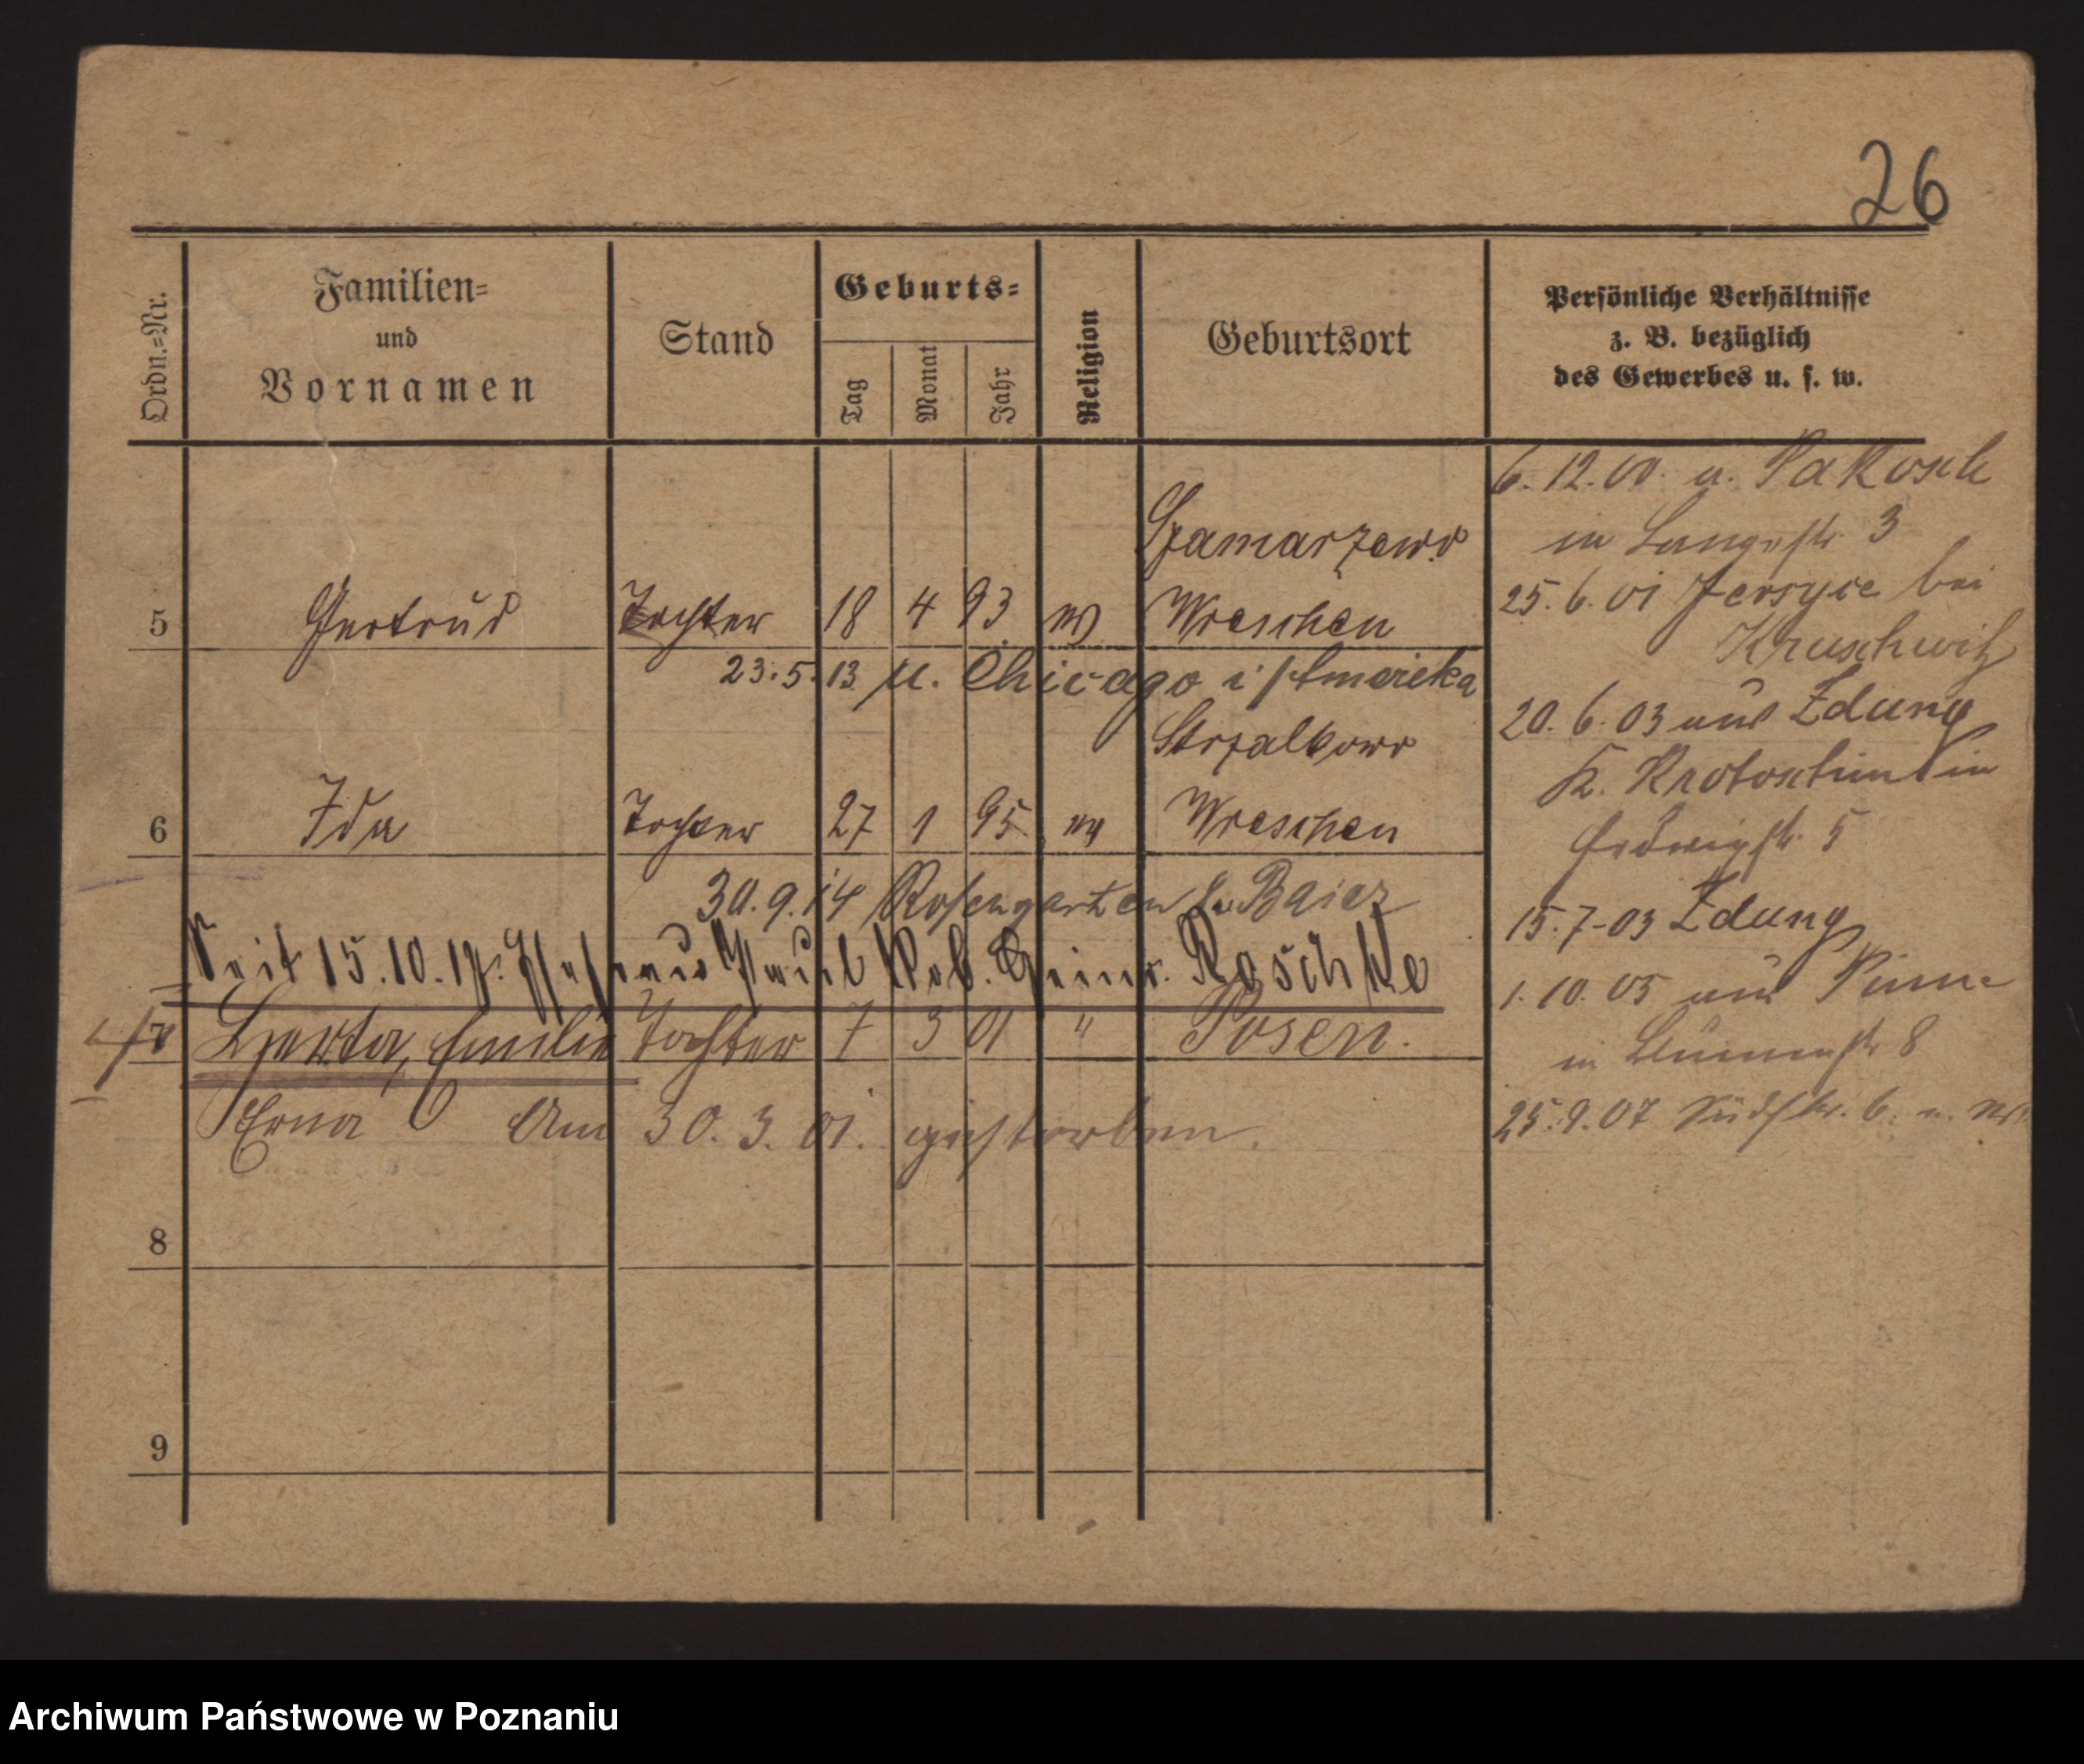 26
Ordn.=Nr.
Familien=
und
Vornamen
Stand
Geburts=
Tag
Monat
Jahr
Religion
Geburtsort
Persönliche Verhältnisse
z. B. bezüglich
des Gewerbes u. s. w.
Szamarzewo
5 Gertrud Tochter 18 4 93 Wreschen
23.5.13 u. Chicago i/Amerika
Strzalkowo
6 Ida Tochter 27 1 95 Wreschen
30.9.14 Rosengarten
Seit 15.10.17. Ehefrau Paul Rob. Heinr. Roschke
7 Herta, Emilie Tochter 7 3 01 " Posen.
Erna Am 30.3.01. gestorben.
8
9
6.12.00. u. Pakosch
in Langestr 3
25.6.01 Jersyce bei
Kruschwitz
20.6.03 aus Zduny
K. Krotoschin in
Hedwigstr. 5
15.7-03 Zduny
1.10.05 aus Pinne
in Blumenstr 8
25.9.07 Südstr. 6.
Archiwum Państwowe w Poznaniu